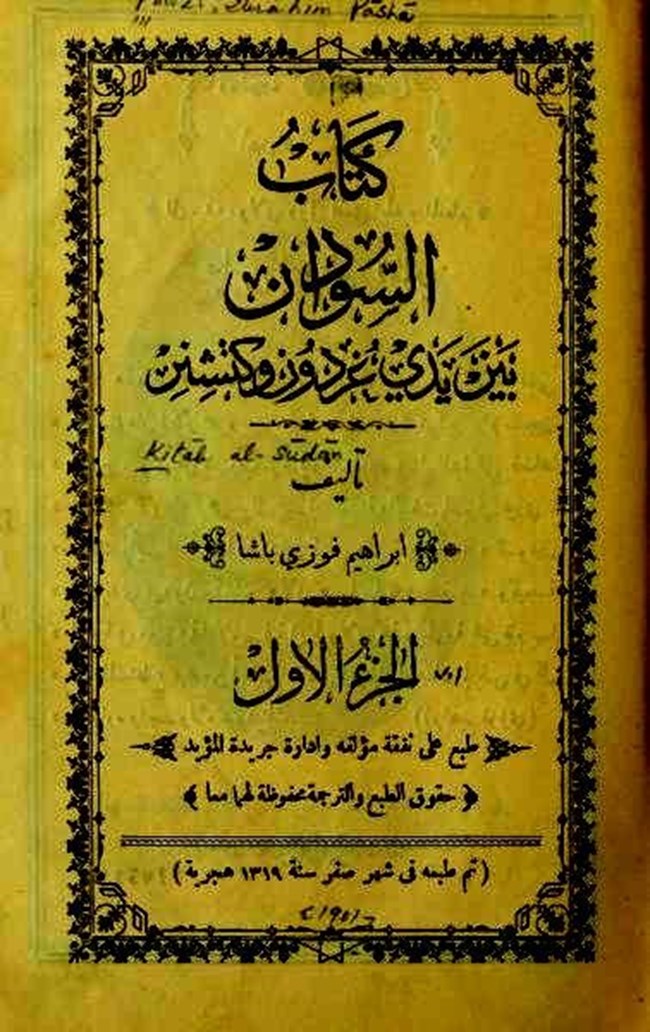 Fawzī, Ibrahim Pāshā
كتاب
السودان
بين يدي غردون وكتشنر
Kitāb al-Sūdān
تأليف
ابراهيم فوزي باشا
الجزء الاول v.1
طبع على نفقة مؤلفه وادارة جريدة المؤيد
حقوق الطبع والترجمة محفوظة لهما معا
(تم طبعه في شهر صفر سنة ١٣١٩ هجرية)
<1901>